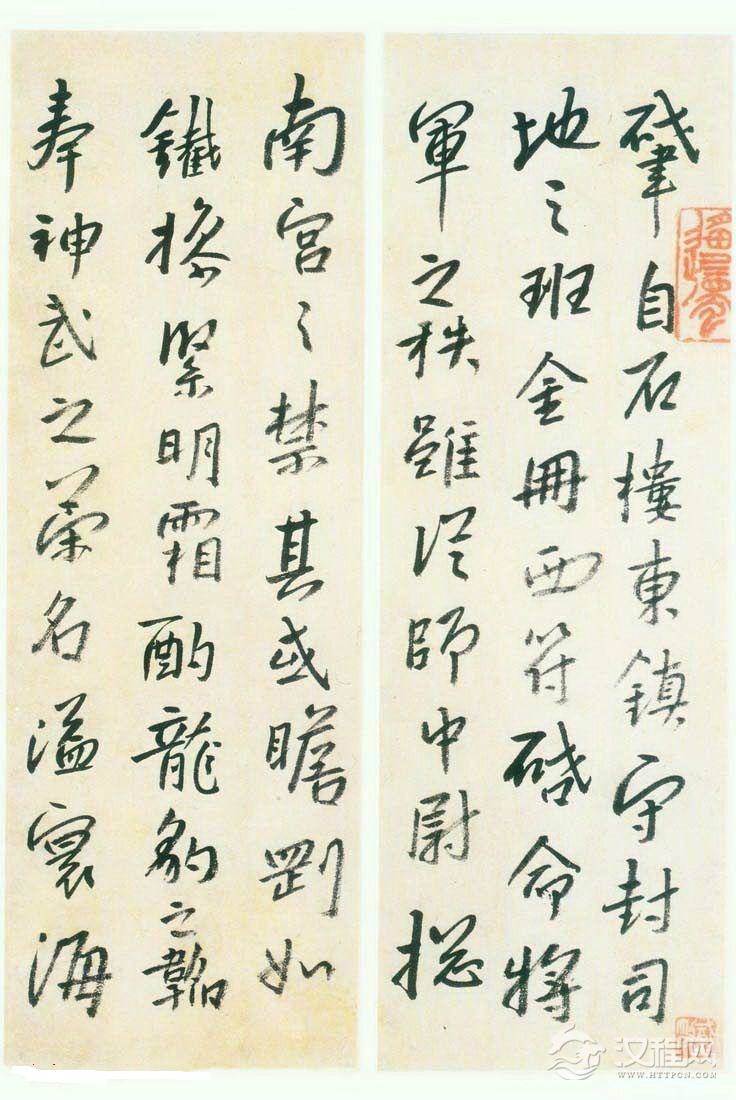 肇自石樓東鎮守封司
地之班金冊西符啟命將
軍之秩雖從師中尉揔
南宮之禁其或瞻剛如
鐵操緊明霜酌龍豹之韜
奉神武之榮名溢寰海
汉程网
WWW.HTTPCN.COM